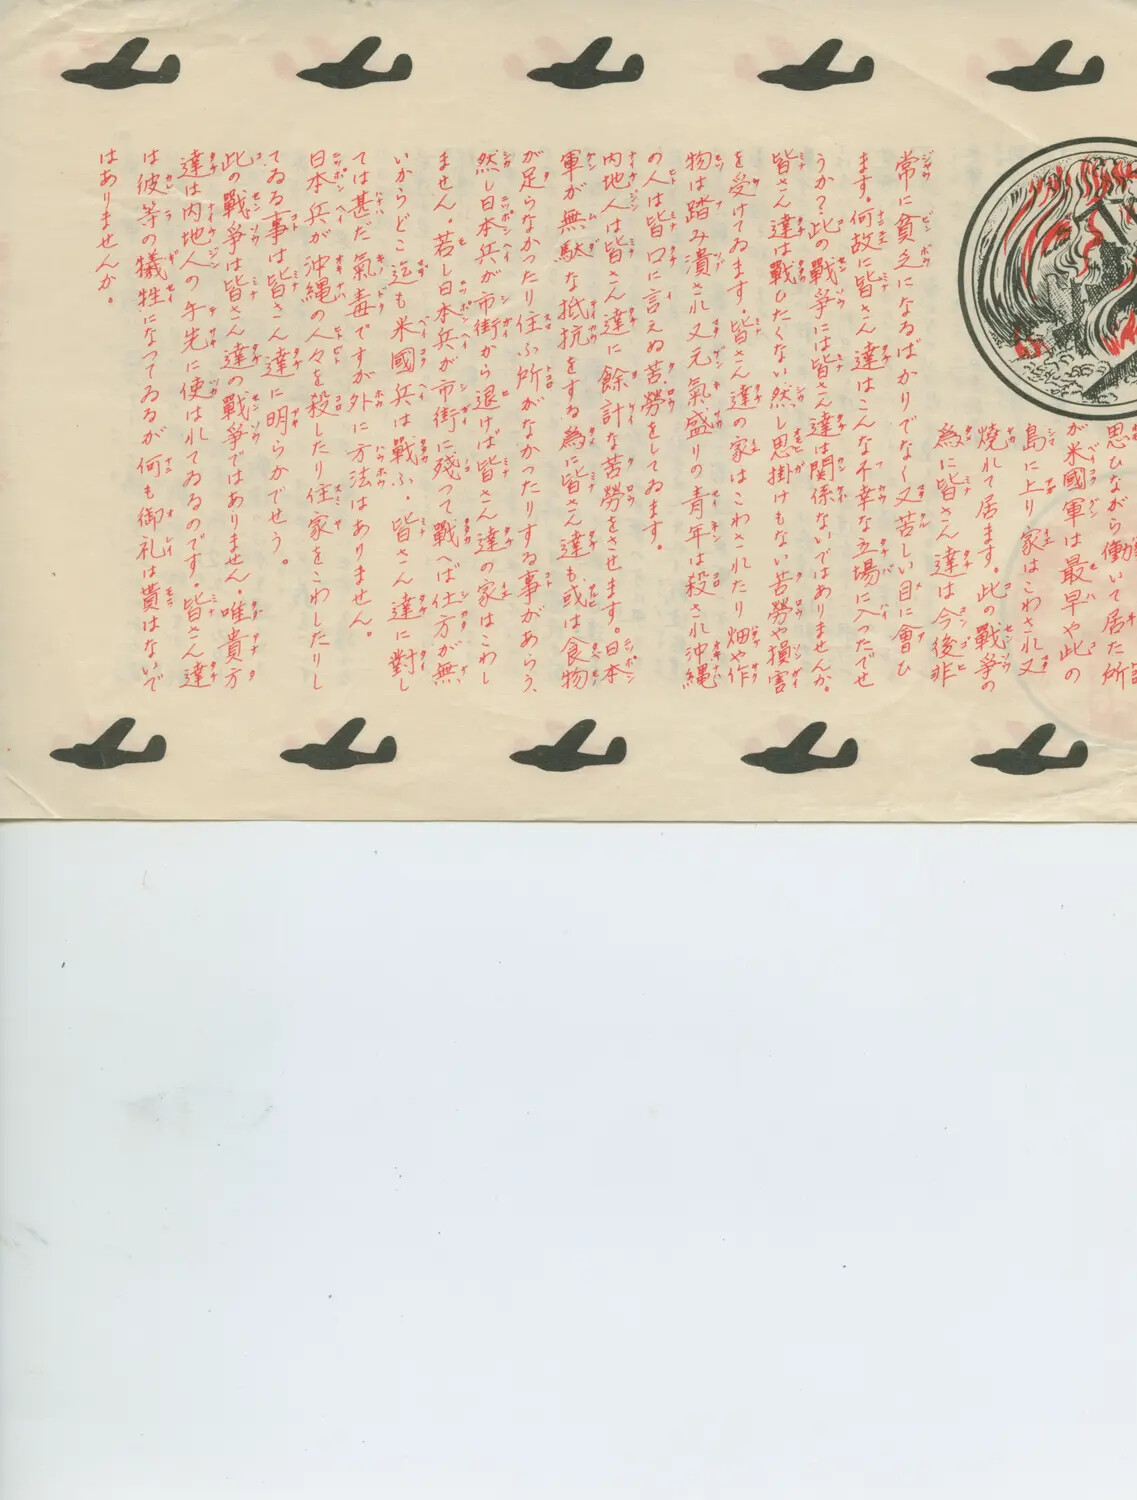 思ひながら働いて居た所
が米國軍は最早や此の
島に上り家はこわされ又
焼れて居ます。此の戰争の
為に皆さん達は今後非
常に貧乏になるばかりでなく又苦しい目に會ひ
ます。何故に皆さん達はこんな不幸な立場に入つたでせ
うか？此の戰争には皆さん達は関係ないではありませんか。
皆さん達は戰ひたくない然し思掛けもない苦勞や損害
を受けてゐます。皆さん達の家はこわされたり畑や作
物は踏み潰され又元氣盛りの青年は殺され沖縄
の人は皆口に言えぬ苦勞をしてゐます。
内地人は皆さん達に餘計な苦勞をさせます。日本
軍が無駄な抵抗をする為に皆さん達も或は食物
が足らなかつたり住ふ所がなかつたりする事があらう、
然し日本兵が市街から退けば皆さん達の家はこわし
ません。若し日本兵が市街に残つて戰へば仕方が無
いからどこ迄も米國兵は戰ふ。皆さん達に對し
ては甚だ氣毒ですが外に方法はありません。
日本兵が沖縄の人々を殺したり住家をこわしたりし
てゐる事は皆さん達に明らかでせう。
此の戰争は皆さん達の戰争ではありません。唯貴方
達は内地人の手先に使はれてゐるのです。皆さん達
は彼等の犠牲になつてゐるが何も御礼は貰はないで
はありませんか。